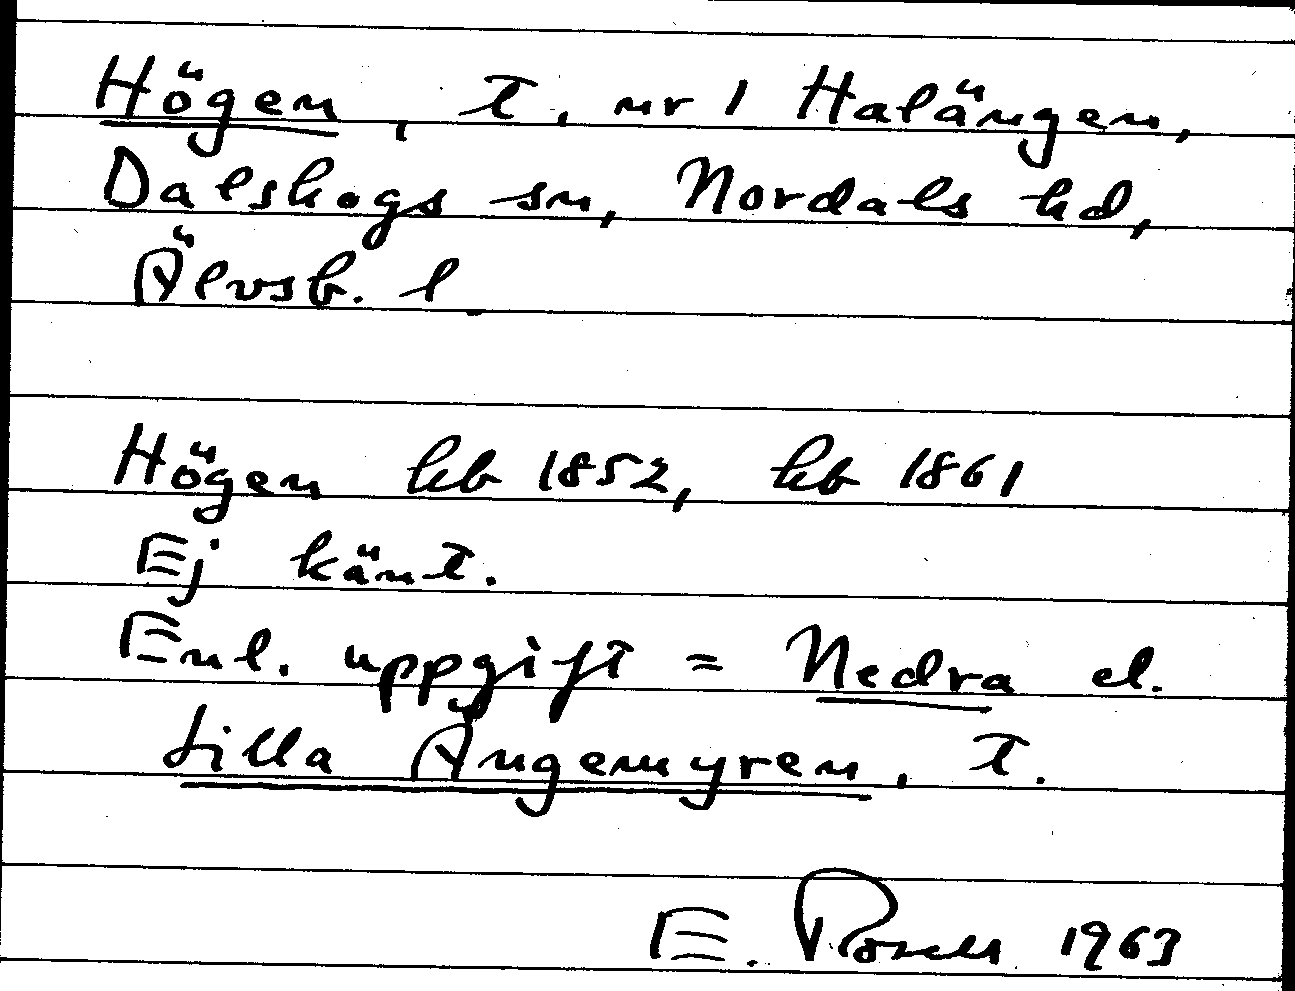 Högen, t. nr 1 Halängen,
Dalskogs sn, Nordals hd,
Älvsb. l.
Högen hb 1852, hb 1861
Ej känt.
Enl. uppgift = Nedra el.
Lilla Ängemyren, t.
E. 1963